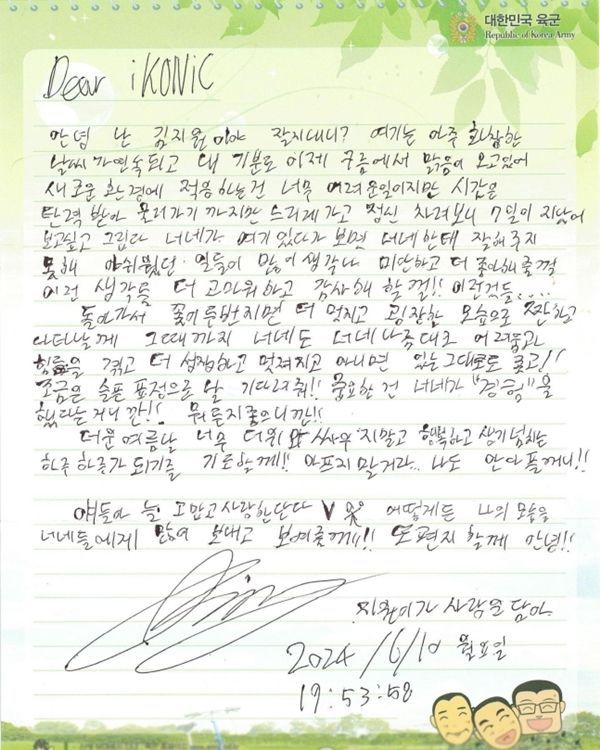 대한민국 육군
Republic of Korea Army
Dear iKONIC
안녕 난 김지원이야 잘지내니? 여기는 아주 화창한
날씨가 연속되고 내 기분도 이제 구름에서 맑음이 오고있어
새로운 환경에 적응하는건 너무 어려운일이지만 시간은
탄력 받아 굴러가기까지만 느리게가고 정신 차려보니 7일이 지났어
보고싶고 그립다 너네가 여기있다가 보면 너네한테 잘해주지
못해 아쉬웠던 일들이 많이 생각나 미안하고 더 좋아해줄껄
이런 생각들 더 고마워하고 감사해 할껄!! 이런것들....
돌아가서 꽃이 만번지면 더 멋지고 굉장한 모습으로 짠하고
나타날께 그때까지 너네도 너네 나름대로 어려움과
힘듦을 겪고 더 성장하고 멋져지고 아니면 있는 그대로도 좋고!!
조금은 슬픈 표정으로 날 기다려줘!! 중요한 건 너네가 "경험"을
했다는 거니깐!! 뭐든지좋으니깐!!
더운여름날 너무 더위와 싸우지말고 행복하고 생기넘치는
하루하루가 되기를 기도할께!! 아프지 말거라.. 나도 안아플께니!!
얘들아 늘 고맙고 사랑한단다 V 어떻게든 나의 모습을
너네들에게 많이 보내고 보여줄께!!! 또편지 할께 안녕!!
지원이가 사랑을 담아
2024 /6/10 월요일
19:53:58